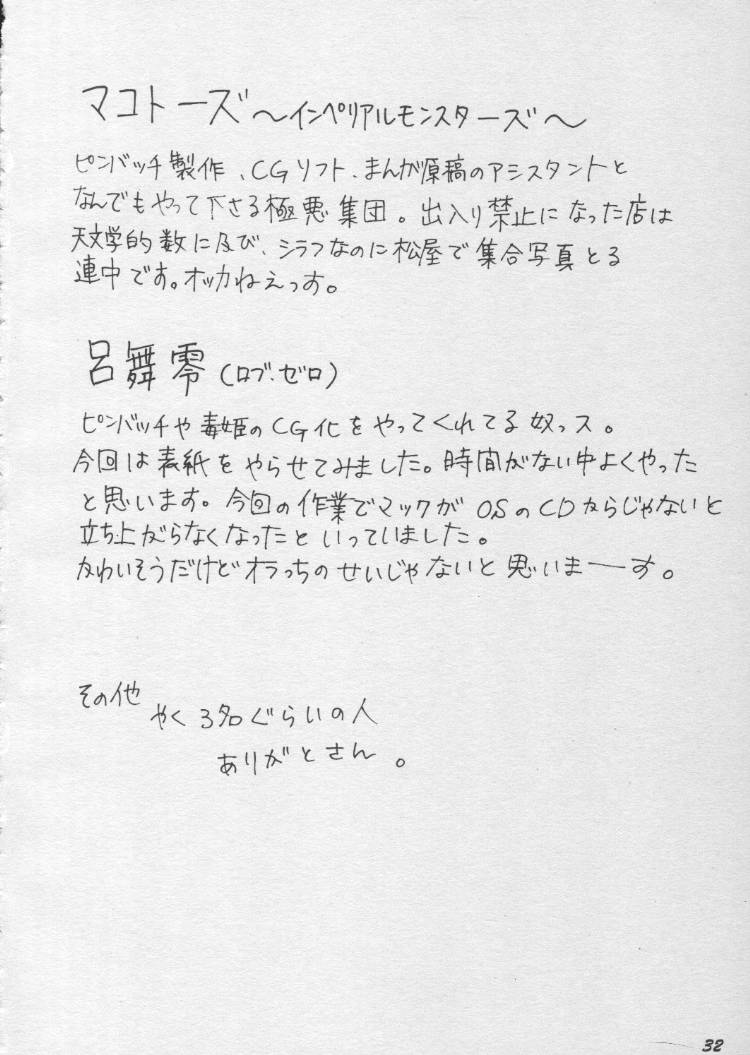 マコトーズ〜インペリアルモンスターズ〜
ピンバッチ製作、CGソフト、まんが原稿のアシスタントと
なんでもやって下さる極悪集団。出入り禁止になった店は
天文学的数に及び、シラフなのに松屋で集合写真とる
連中です。オッカねえっす。
呂舞零(ロブ・ゼロ)
ピンバッチや毒姫のCG化をやってくれてる奴っス。
今回は表紙をやらせてみました。時間がない中よくやった
と思います。今回の作業でマックがOSのCDからじゃないと
立ち上がらなくなったといっていました。
かわいそうだけどオラっちのせいじゃないと思いまーす。
その他
やく3名ぐらいの人
ありがとさん。
32